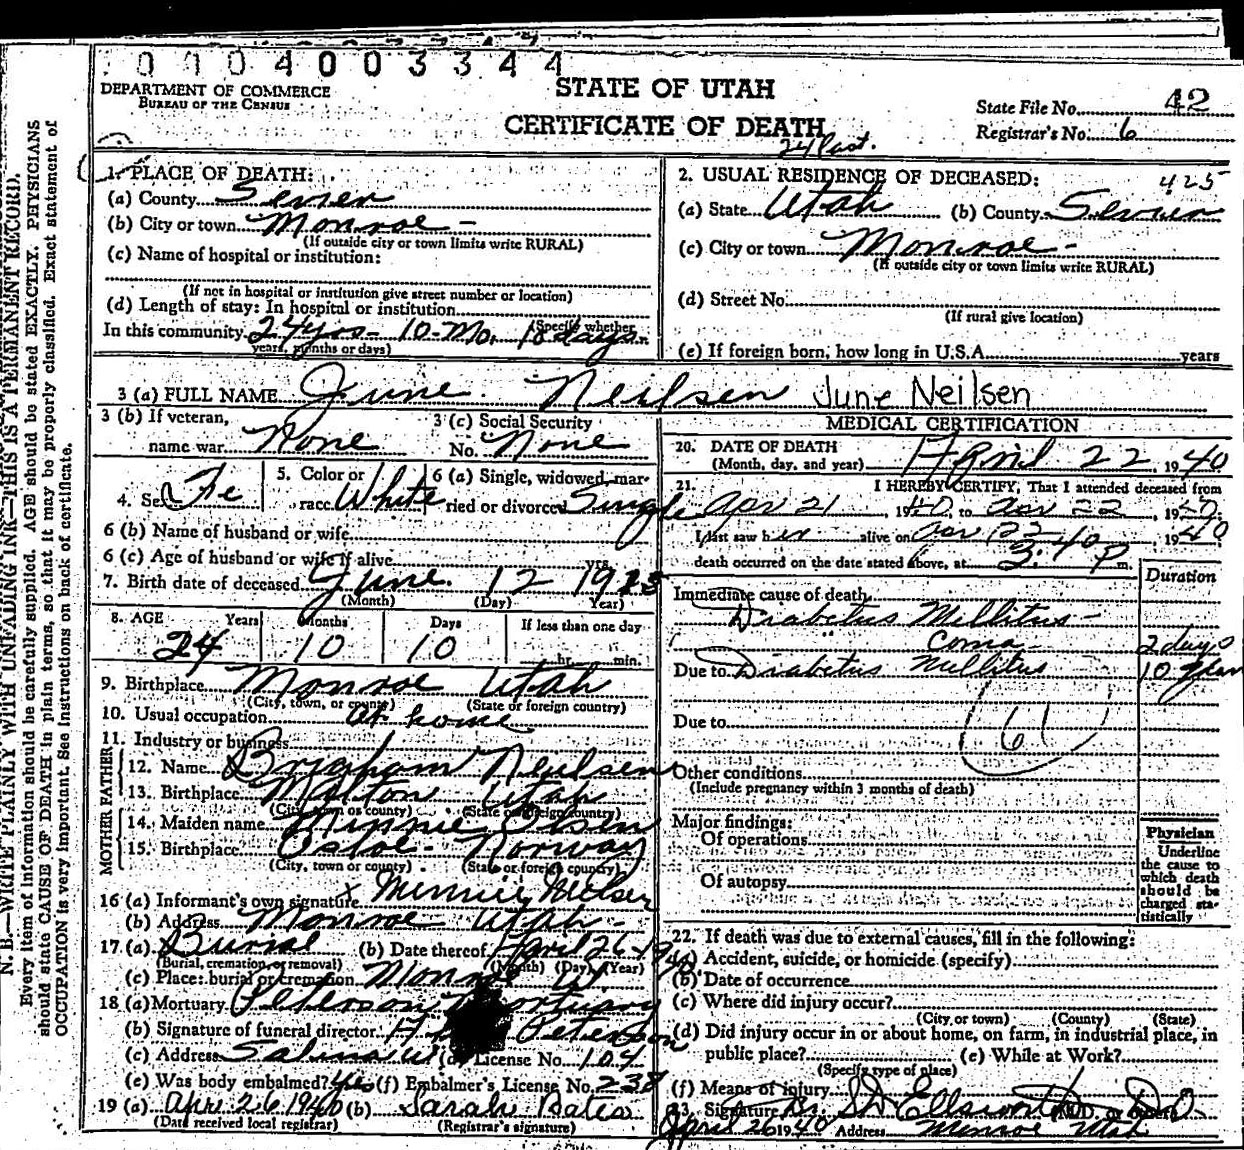 0 1 0 4 0 0 3 3 4 4
DEPARTMENT OF COMMERCE
BUREAU OF THE CENSUS
STATE OF UTAH
CERTIFICATE OF DEATH
State File No. 42
Registrar's No. 6
1. PLACE OF DEATH:
(a) County Sevier
(b) City or town Monroe -
(If outside city or town limits write RURAL)
(c) Name of hospital or institution:
(If not in hospital or institution give street number or location)
(d) Length of stay: In hospital or institution
(Specify whether
In this community 24 yrs - 10-Mo. 10 days.
years, months or days)
2. USUAL RESIDENCE OF DECEASED: 425
(a) State Utah (b) County Sevier
(c) City or town Monroe -
(If outside city or town limits write RURAL)
(d) Street No.
(If rural give location)
(e) If foreign born, how long in U.S.A. years
3 (a) FULL NAME June Neilsen June Neilsen
3 (b) If veteran,
name war None
3 (c) Social Security
No. None
4. Sex Fe
5. Color or
race White
6 (a) Single, widowed, mar-
ried or divorced Single
6 (b) Name of husband or wife
6 (c) Age of husband or wife if alive yrs.
7. Birth date of deceased June 12 1915
(Month) (Day) (Year)
8. AGE Years Months Days If less than one day
24 10 10 hr. min.
9. Birthplace Monroe Utah
(City, town, or county) (State or foreign country)
10. Usual occupation at home
11. Industry or business
FATHER
12. Name Brigham Neilsen
13. Birthplace Utah
(City, town or county) (State or foreign country)
MOTHER
14. Maiden name Minnie Olsen
15. Birthplace Norway
(City, town or county) (State or foreign country)
16 (a) Informant's own signature x Minnie Neilsen
(b) Address Monroe Utah
17 (a) Burial (b) Date thereof April 26-1940
(Burial, cremation, or removal) (Month) (Day) (Year)
(c) Place: burial or cremation Monroe U
18 (a) Mortuary Peterson Mortuary
(b) Signature of funeral director Peterson
(c) Address Salina U (d) License No. 104
(e) Was body embalmed? Yes (f) Embalmer's License No. 238
19 (a) Apr. 26 1940 (b) Sarah Bates
(Date received local registrar) (Registrar's signature)
MEDICAL CERTIFICATION
20. DATE OF DEATH
(Month, day, and year) April 22 1940
21. I HEREBY CERTIFY, That I attended deceased from
Apr 21, 1940, to Apr 22, 1940.
I last saw her alive on Apr 22 1940
death occurred on the date stated above, at 3:40 P m.
Duration
Immediate cause of death
Diabetus Mellitus -
" Coma 2 days
Due to Diabetus Mellitus 10 years
Due to
61
Other conditions
(Include pregnancy within 3 months of death)
Major findings:
Of operations
Of autopsy
Physician
Underline
the cause to
which death
should be
charged sta-
tistically
22. If death was due to external causes, fill in the following:
(a) Accident, suicide, or homicide (specify)
(b) Date of occurrence
(c) Where did injury occur?
(City or town) (County) (State)
(d) Did injury occur in or about home, on farm, in industrial place, in
public place? (e) While at Work?
(Specify type of place)
(f) Means of injury
23. Signature Dr. Ellsworth
April 26 1940 Address Monroe Utah
N. B.—WRITE PLAINLY WITH UNFADING INK—THIS IS A PERMANENT RECORD.
Every item of information should be carefully supplied. AGE should be stated EXACTLY. PHYSICIANS
should state CAUSE OF DEATH in plain terms, so that it may be properly classified. Exact statement of
OCCUPATION is very important. See instructions on back of certificate.